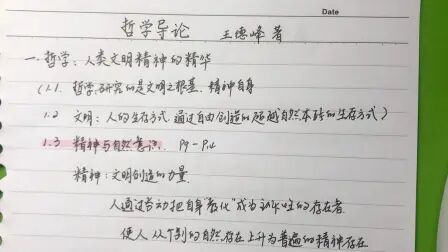 Date
哲学导论 王德峰 著
一.哲学:人类文明精神的精华
(1.1. 哲学研究的是文明之根基,精神自身
1.2 文明:人的生存方式,通过自由创造的超越自然本能的生存方式)
1.3 精神与自然意识. P9-P14
精神:文明创造的力量.
人通过劳动把自身"教化"成为认知性的存在者.
使人从个别的自然存在上升为普遍的精神存在